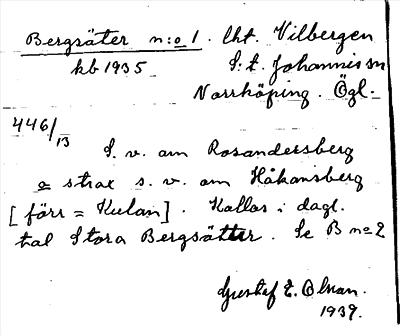 Bergsäter n:o 1. lht. Vilbergen
kb 1935
S:t. Johannis sn
Norrköping. Ögl.
446/13
S. v. om Rosandersberg
o strax s. v. om Håkansberg
[förr = Kulan]. Kallas i dagl.
tal Stora Bergsätter. Se B no 2
Gustaf E. Olson.
1939.